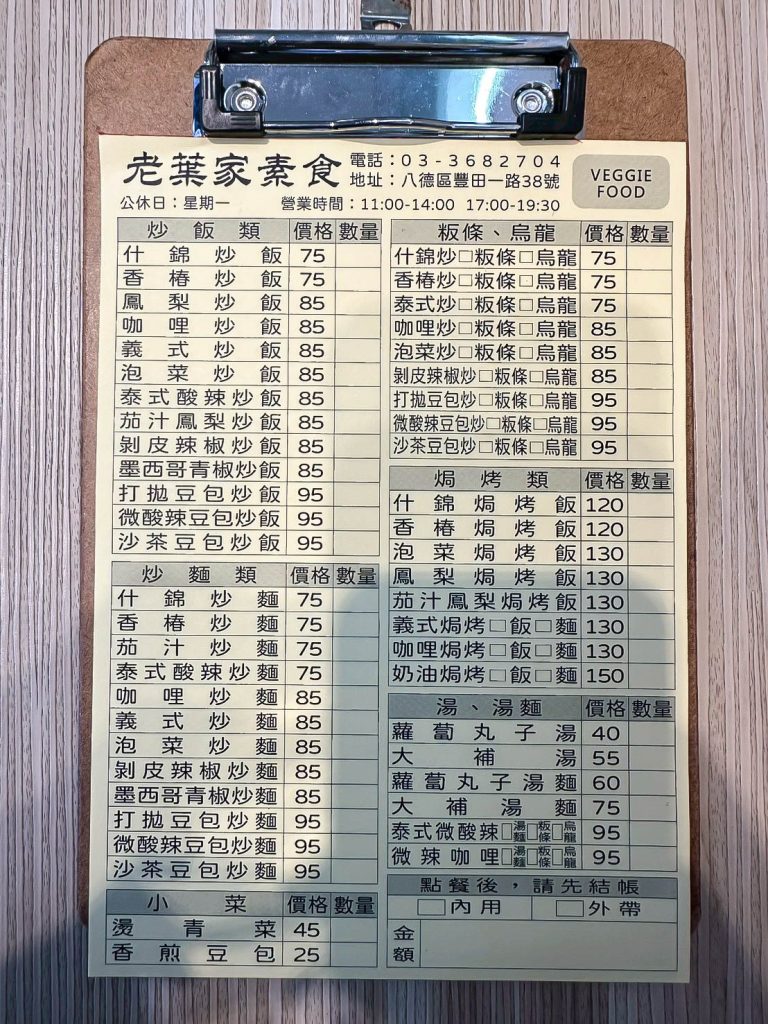 老葉家素食
電話：03-3682704
地址：八德區豐田一路38號
VEGGIE
FOOD
公休日：星期一 營業時間：11:00-14:00 17:00-19:30
炒飯類 價格 數量
什錦炒飯 75
香椿炒飯 75
鳳梨炒飯 85
咖哩炒飯 85
義式炒飯 85
泡菜炒飯 85
泰式酸辣炒飯 85
茄汁鳳梨炒飯 85
剝皮辣椒炒飯 85
墨西哥青椒炒飯 85
打拋豆包炒飯 95
微酸辣豆包炒飯 95
沙茶豆包炒飯 95
炒麵類 價格 數量
什錦炒麵 75
香椿炒麵 75
茄汁炒麵 75
泰式酸辣炒麵 75
咖哩炒麵 85
義式炒麵 85
泡菜炒麵 85
剝皮辣椒炒麵 85
墨西哥青椒炒麵 85
打拋豆包炒麵 95
微酸辣豆包炒麵 95
沙茶豆包炒麵 95
小菜 價格 數量
燙青菜 45
香煎豆包 25
粄條、烏龍 價格 數量
什錦炒□粄條□烏龍 75
香椿炒□粄條□烏龍 75
泰式炒□粄條□烏龍 75
咖哩炒□粄條□烏龍 85
泡菜炒□粄條□烏龍 85
剝皮辣椒炒□粄條□烏龍 85
打拋豆包炒□粄條□烏龍 95
微酸辣豆包炒□粄條□烏龍 95
沙茶豆包炒□粄條□烏龍 95
焗烤類 價格 數量
什錦焗烤飯 120
香椿焗烤飯 120
泡菜焗烤飯 130
鳳梨焗烤飯 130
茄汁鳳梨焗烤飯 130
義式焗烤□飯□麵 130
咖哩焗烤□飯□麵 130
奶油焗烤□飯□麵 150
湯、湯麵 價格 數量
蘿蔔丸子湯 40
大補湯 55
蘿蔔丸子湯麵 60
大補湯麵 75
泰式微酸辣□湯麵□粄條□烏龍 95
微辣咖哩□湯麵□粄條□烏龍 95
點餐後，請先結帳
□內用 □外帶
金額